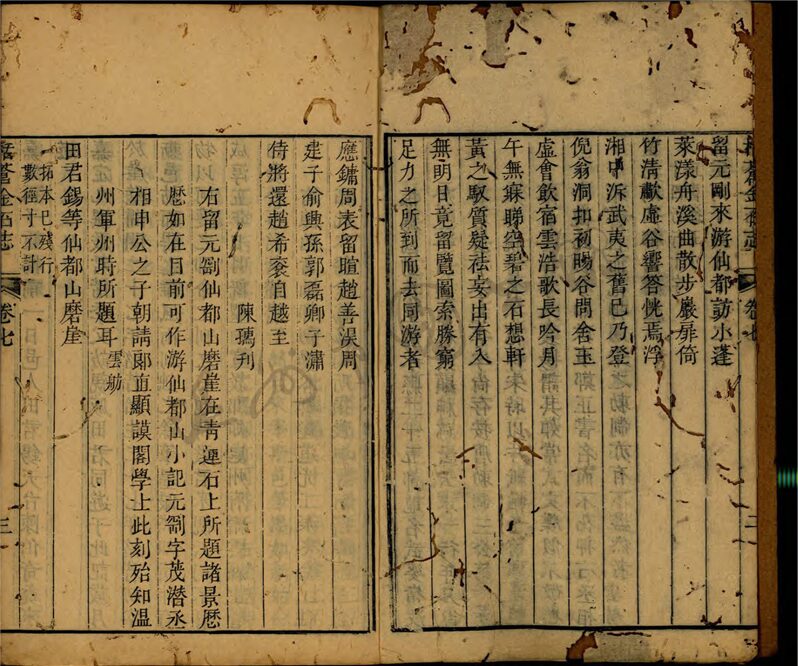 括蒼金石志 卷七 三
留元剛來游仙都訪小蓬
萊漾舟溪曲散步巖扉倚
竹清獻虛谷響答恍焉浮
湘中泝武夷之舊已乃登
倪翁洞扣初暘谷問舍玉
虛會飲宿雲浩歌長吟月
午無寐睇空碧之石想軒
黃之馭質疑袪妄出有入
無明日竟留覽圖索勝窮
足力之所到而去同游者
應鏞周表留暄趙善渂周
建子俞興孫郭磊卿子潚
侍將還趙希衮自越至
陳刊
右留元劄仙都山磨崖在靑蓮石上所題諸景歷
歷如在目前可作游仙都山小記元劄字茂潛丞
相申公之子朝請郞直顯謨閣學士此刻殆知溫
州軍州時所題耳 雲舫
田君錫等仙都山磨崖
拓本已殘行
數徑寸不計
括蒼金石志 卷七 三